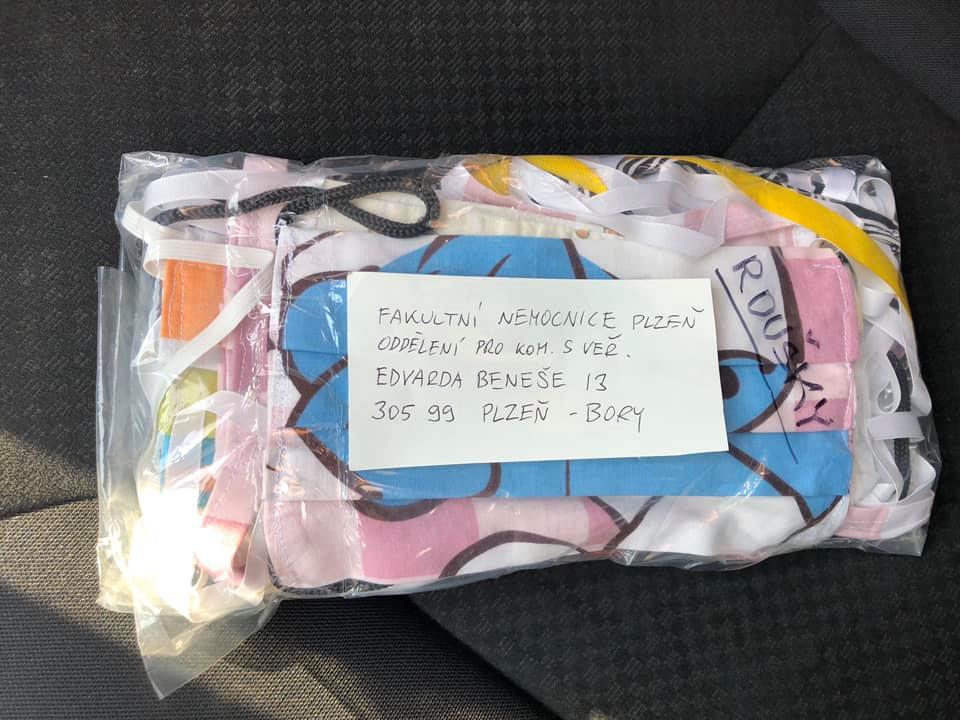 FAKULTNÍ NEMOCNICE PLZEŇ
ODDĚLENÍ PRO KOM. S VEŘ.
EDVARDA BENEŠE 13
305 99 PLZEŇ - BORY
ROUŠKY